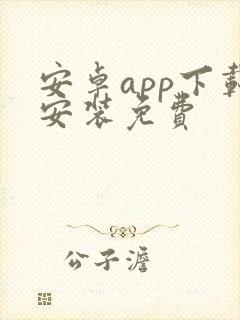 安卓app下载
安装免费
公子澹